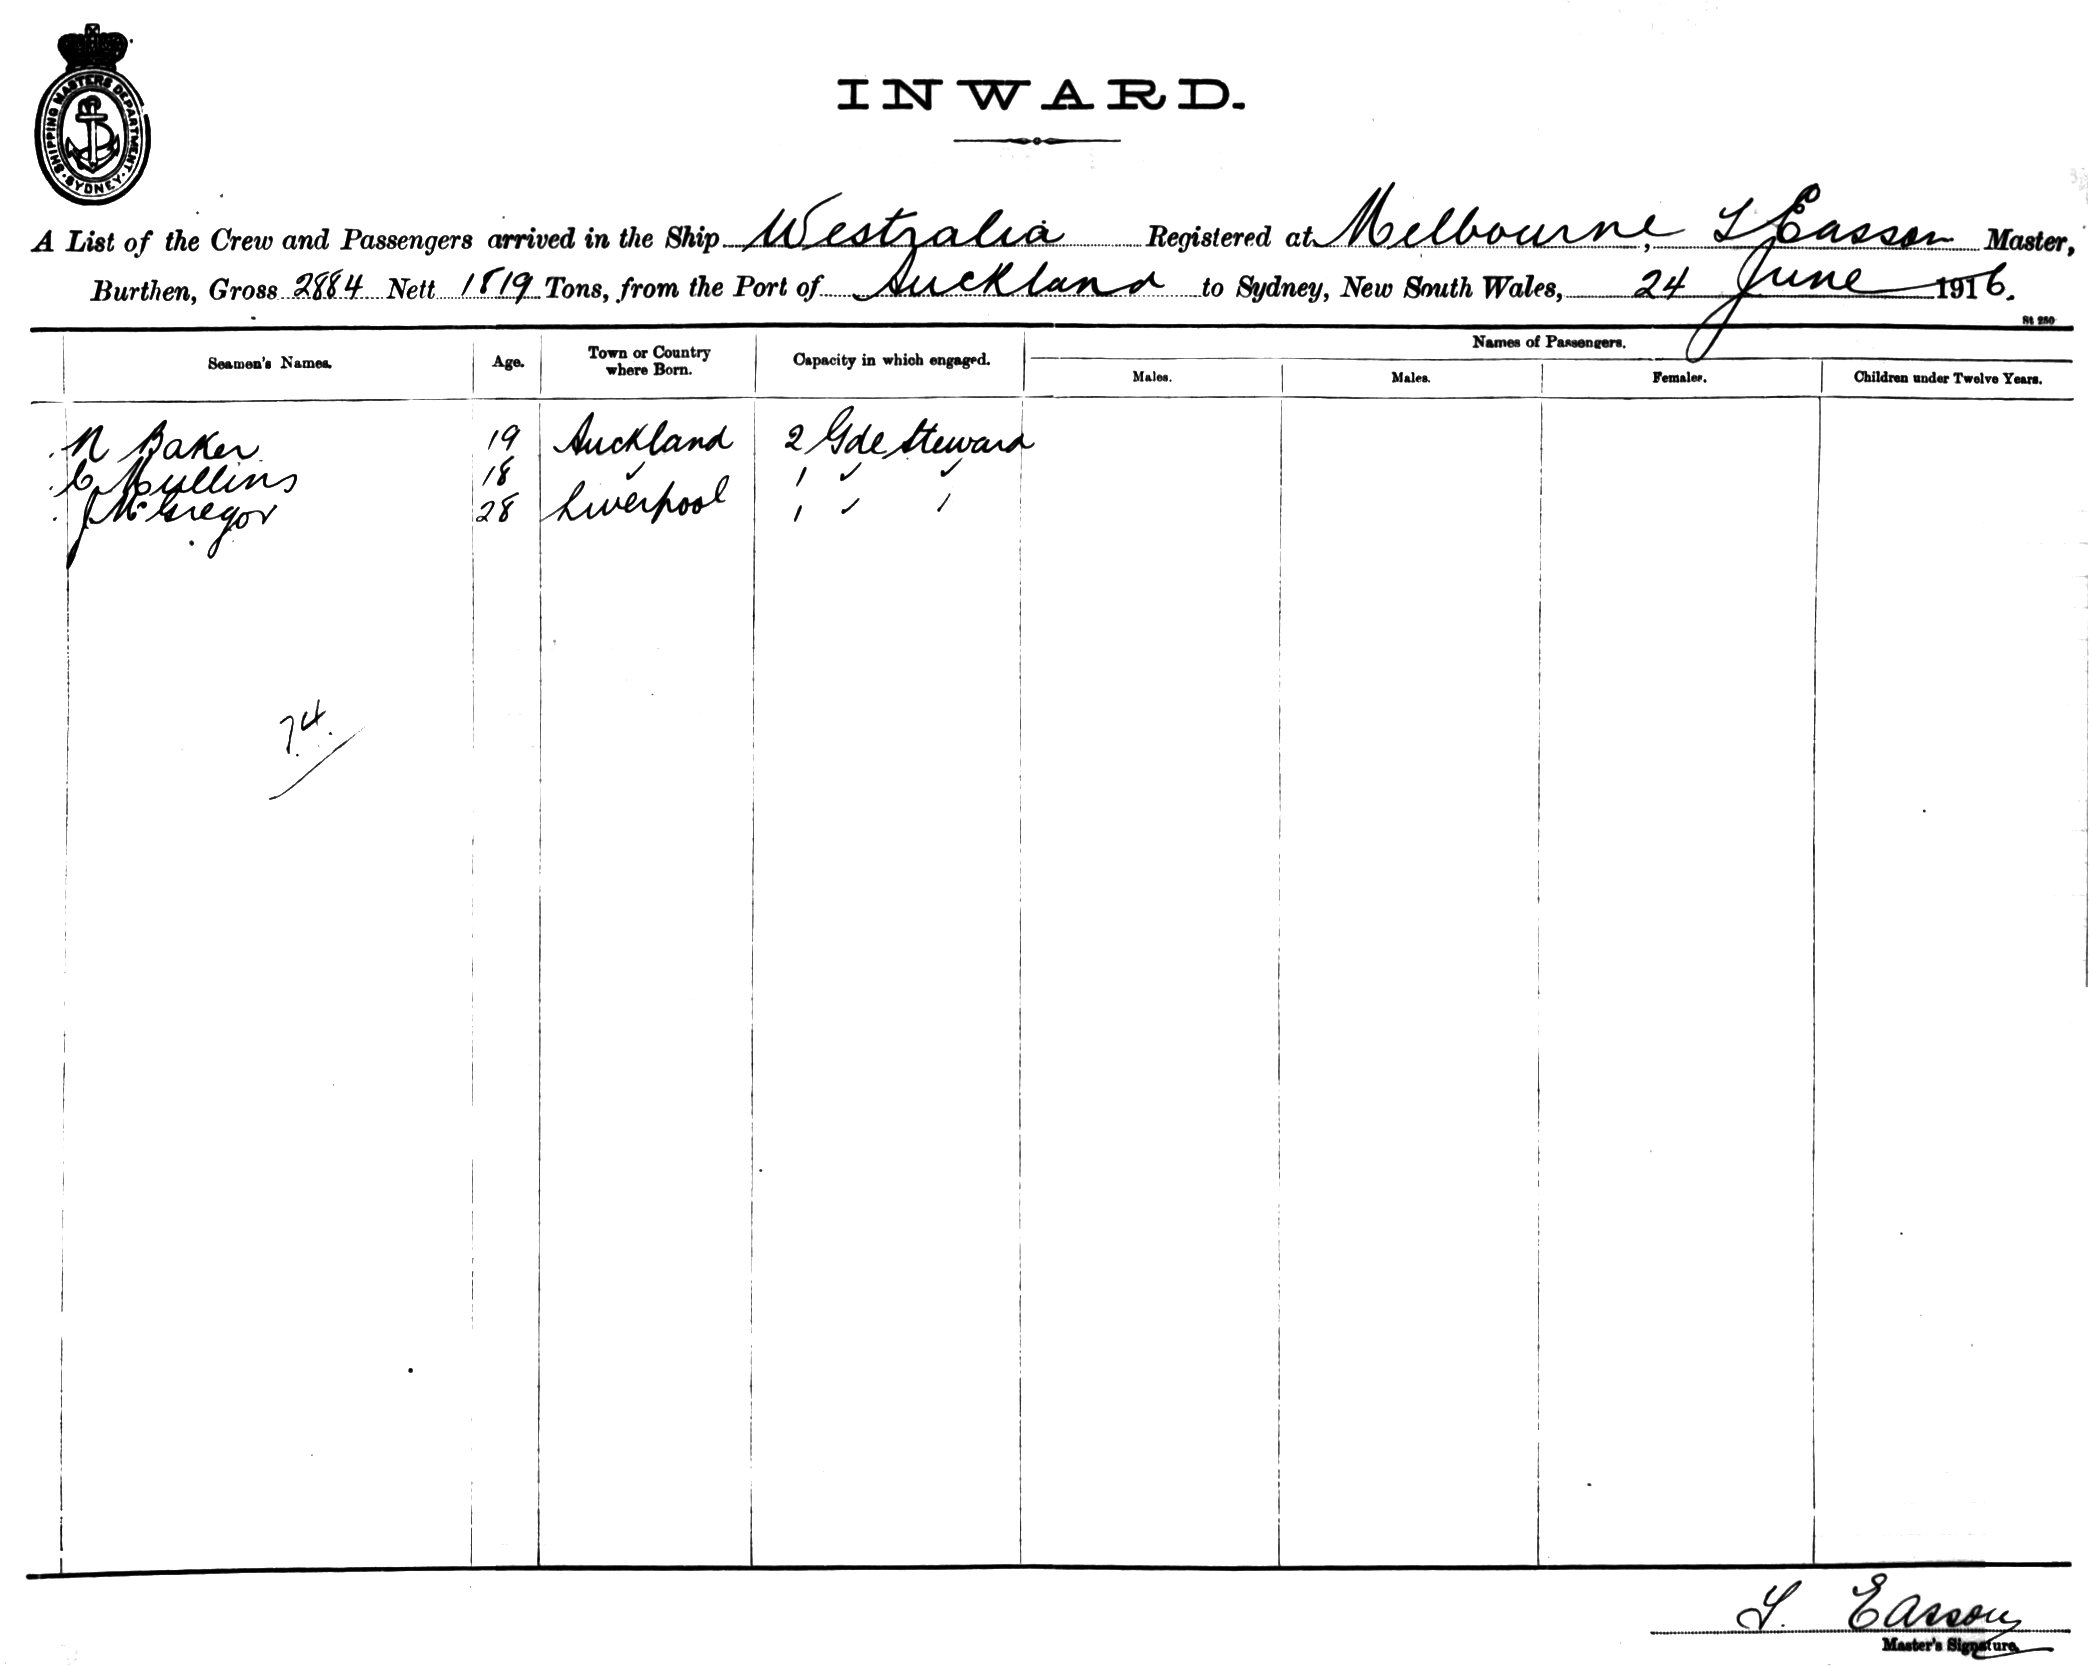 SHIPPING MASTERS DEPARTMENT
SYDNEY
INWARD.
A List of the Crew and Passengers arrived in the Ship Westralia Registered at Melbourne, Easson Master,
Burthen, Gross 2884 Nett 1819 Tons, from the Port of Auckland to Sydney, New South Wales, 24 June 1916.
St 250
Seamen's Names. Age. Town or Country where Born. Capacity in which engaged. Names of Passengers.
Males. Males. Females. Children under Twelve Years.
N Baker 19 Auckland 2 Gde Steward
C Mullins 18 ✓ 1 ✓ ✓
J McGregor 28 Liverpool 1 ✓ 1
74.
Easson
Master's Signature